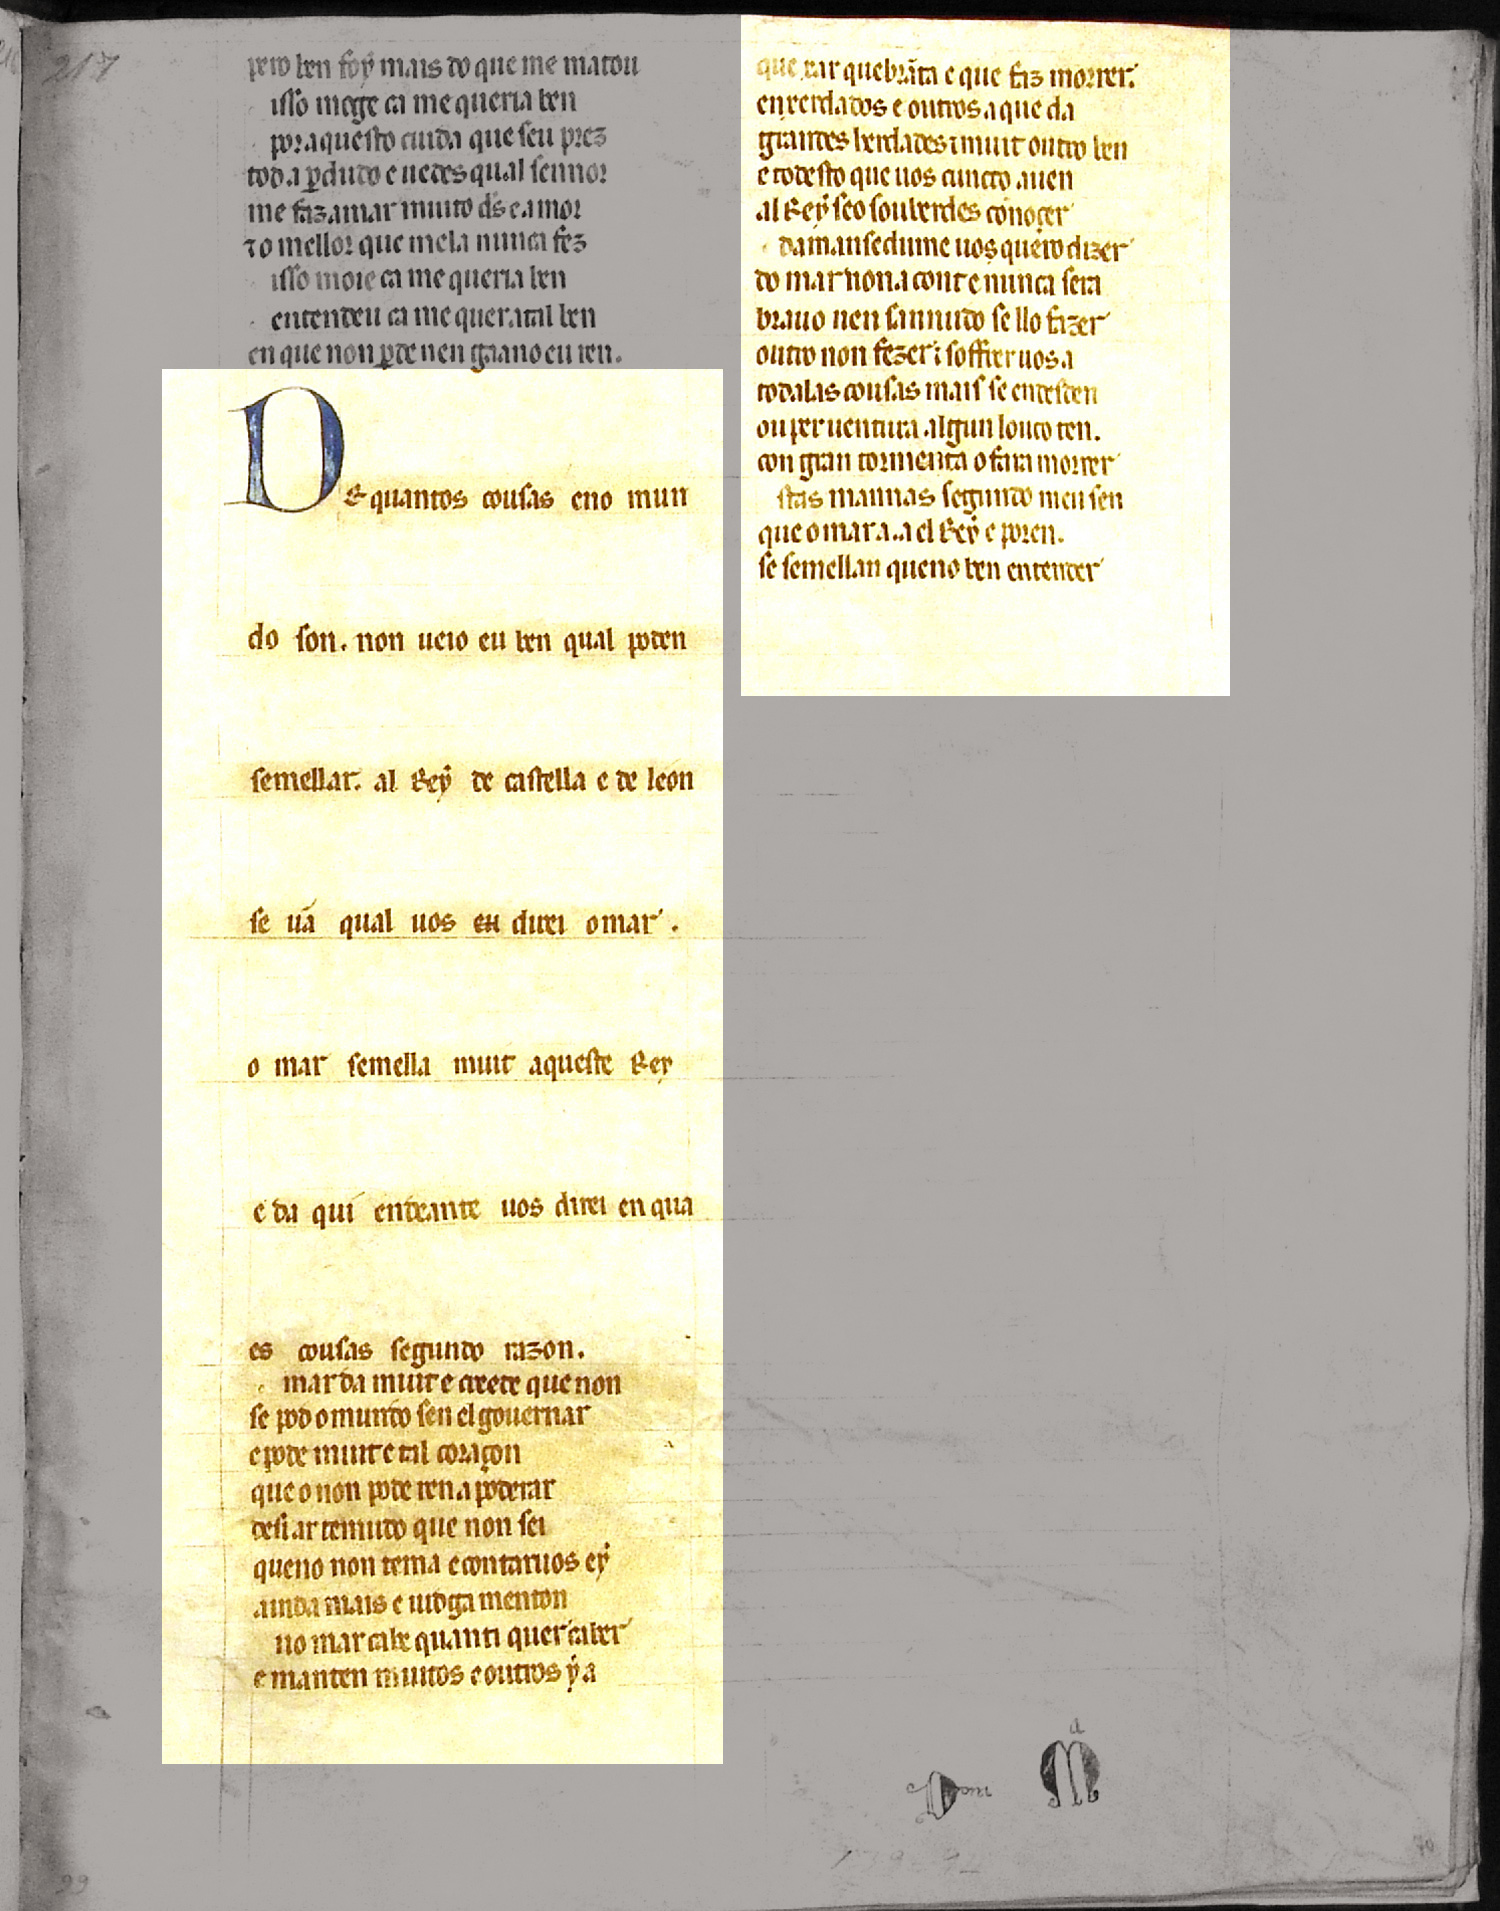 217
pero ben foy mais do que me matou
isso moge ca me queria ben
por aquesto cuida que seu prez
toda pduto e uedes qual sennor
me faz amar muito ds e amor
⁊ o mellor que mela nunca fez
isso moie ca me queria ben
entendeu ca me quer a tal ben
en que non pde nen gaano eu ren.
DE quantos cousas eno mun
do son. non ueio eu ben qual poden
semellar. al Rey de castella e de leon
se uã qual uos eu direi o mar.
o mar semella muit aqueste Rey
e da qui endeante uos direi en qua
es cousas segundo razon.
mar da muit e creede que non
se pod o mundo sen el gouernar
e pode muit e tal coraçon
que o non pode ren apoderar
desi ar temudo que non sei
queno non tema e contaruos ey
ainda mais e iudgamenton
no mar cabe quanti quer caber
e manten muitos e outros y a
que xar quebrãta e que faz morrer.
enxerdados e outros a que da
grandes herdades ⁊ muit outro ben
e tod esto que uos cuncto auen
al Rey seo souberdes conoçer
da mansedume uos quero dizer
do mar non a cont e nunca sera
brauo nen sannudo se llo fazer
outro non fezer ⁊ soffrer uos a
todalas cousas mais se en desden
ou per uentura algun louco ten.
con gran tormenta o fara morrer
stas mannas segundo meu sen
que o mar a..a el Rey e poren.
se semellan queno ben entender